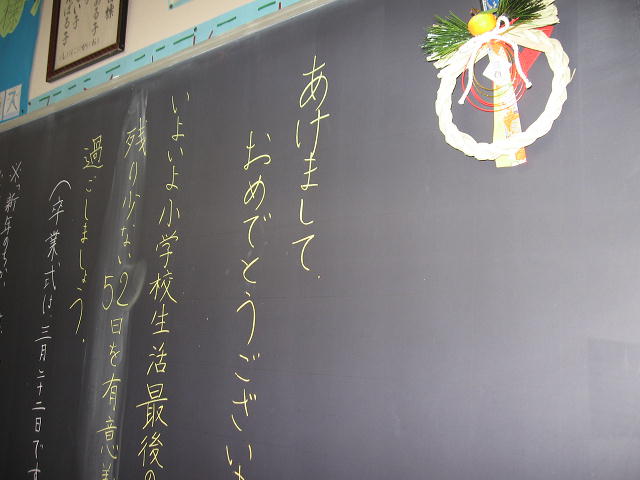 あけまして
おめでとうござい
いよいよ小学校生活最後の
残り少ない52日を有意義
過ごしましょう.
(卒業式は三月二十二日です
※新年の